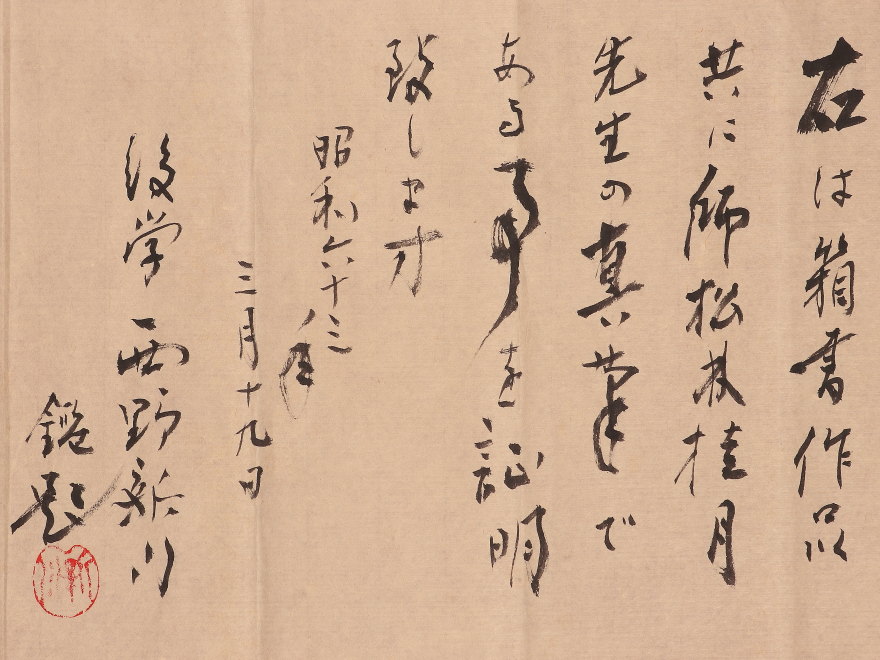 右は箱書作品
共に師松林桂月
先生の真筆で
ある事を証明
致します
昭和六十三年
三月十九日
後学 西野新川
鑑題